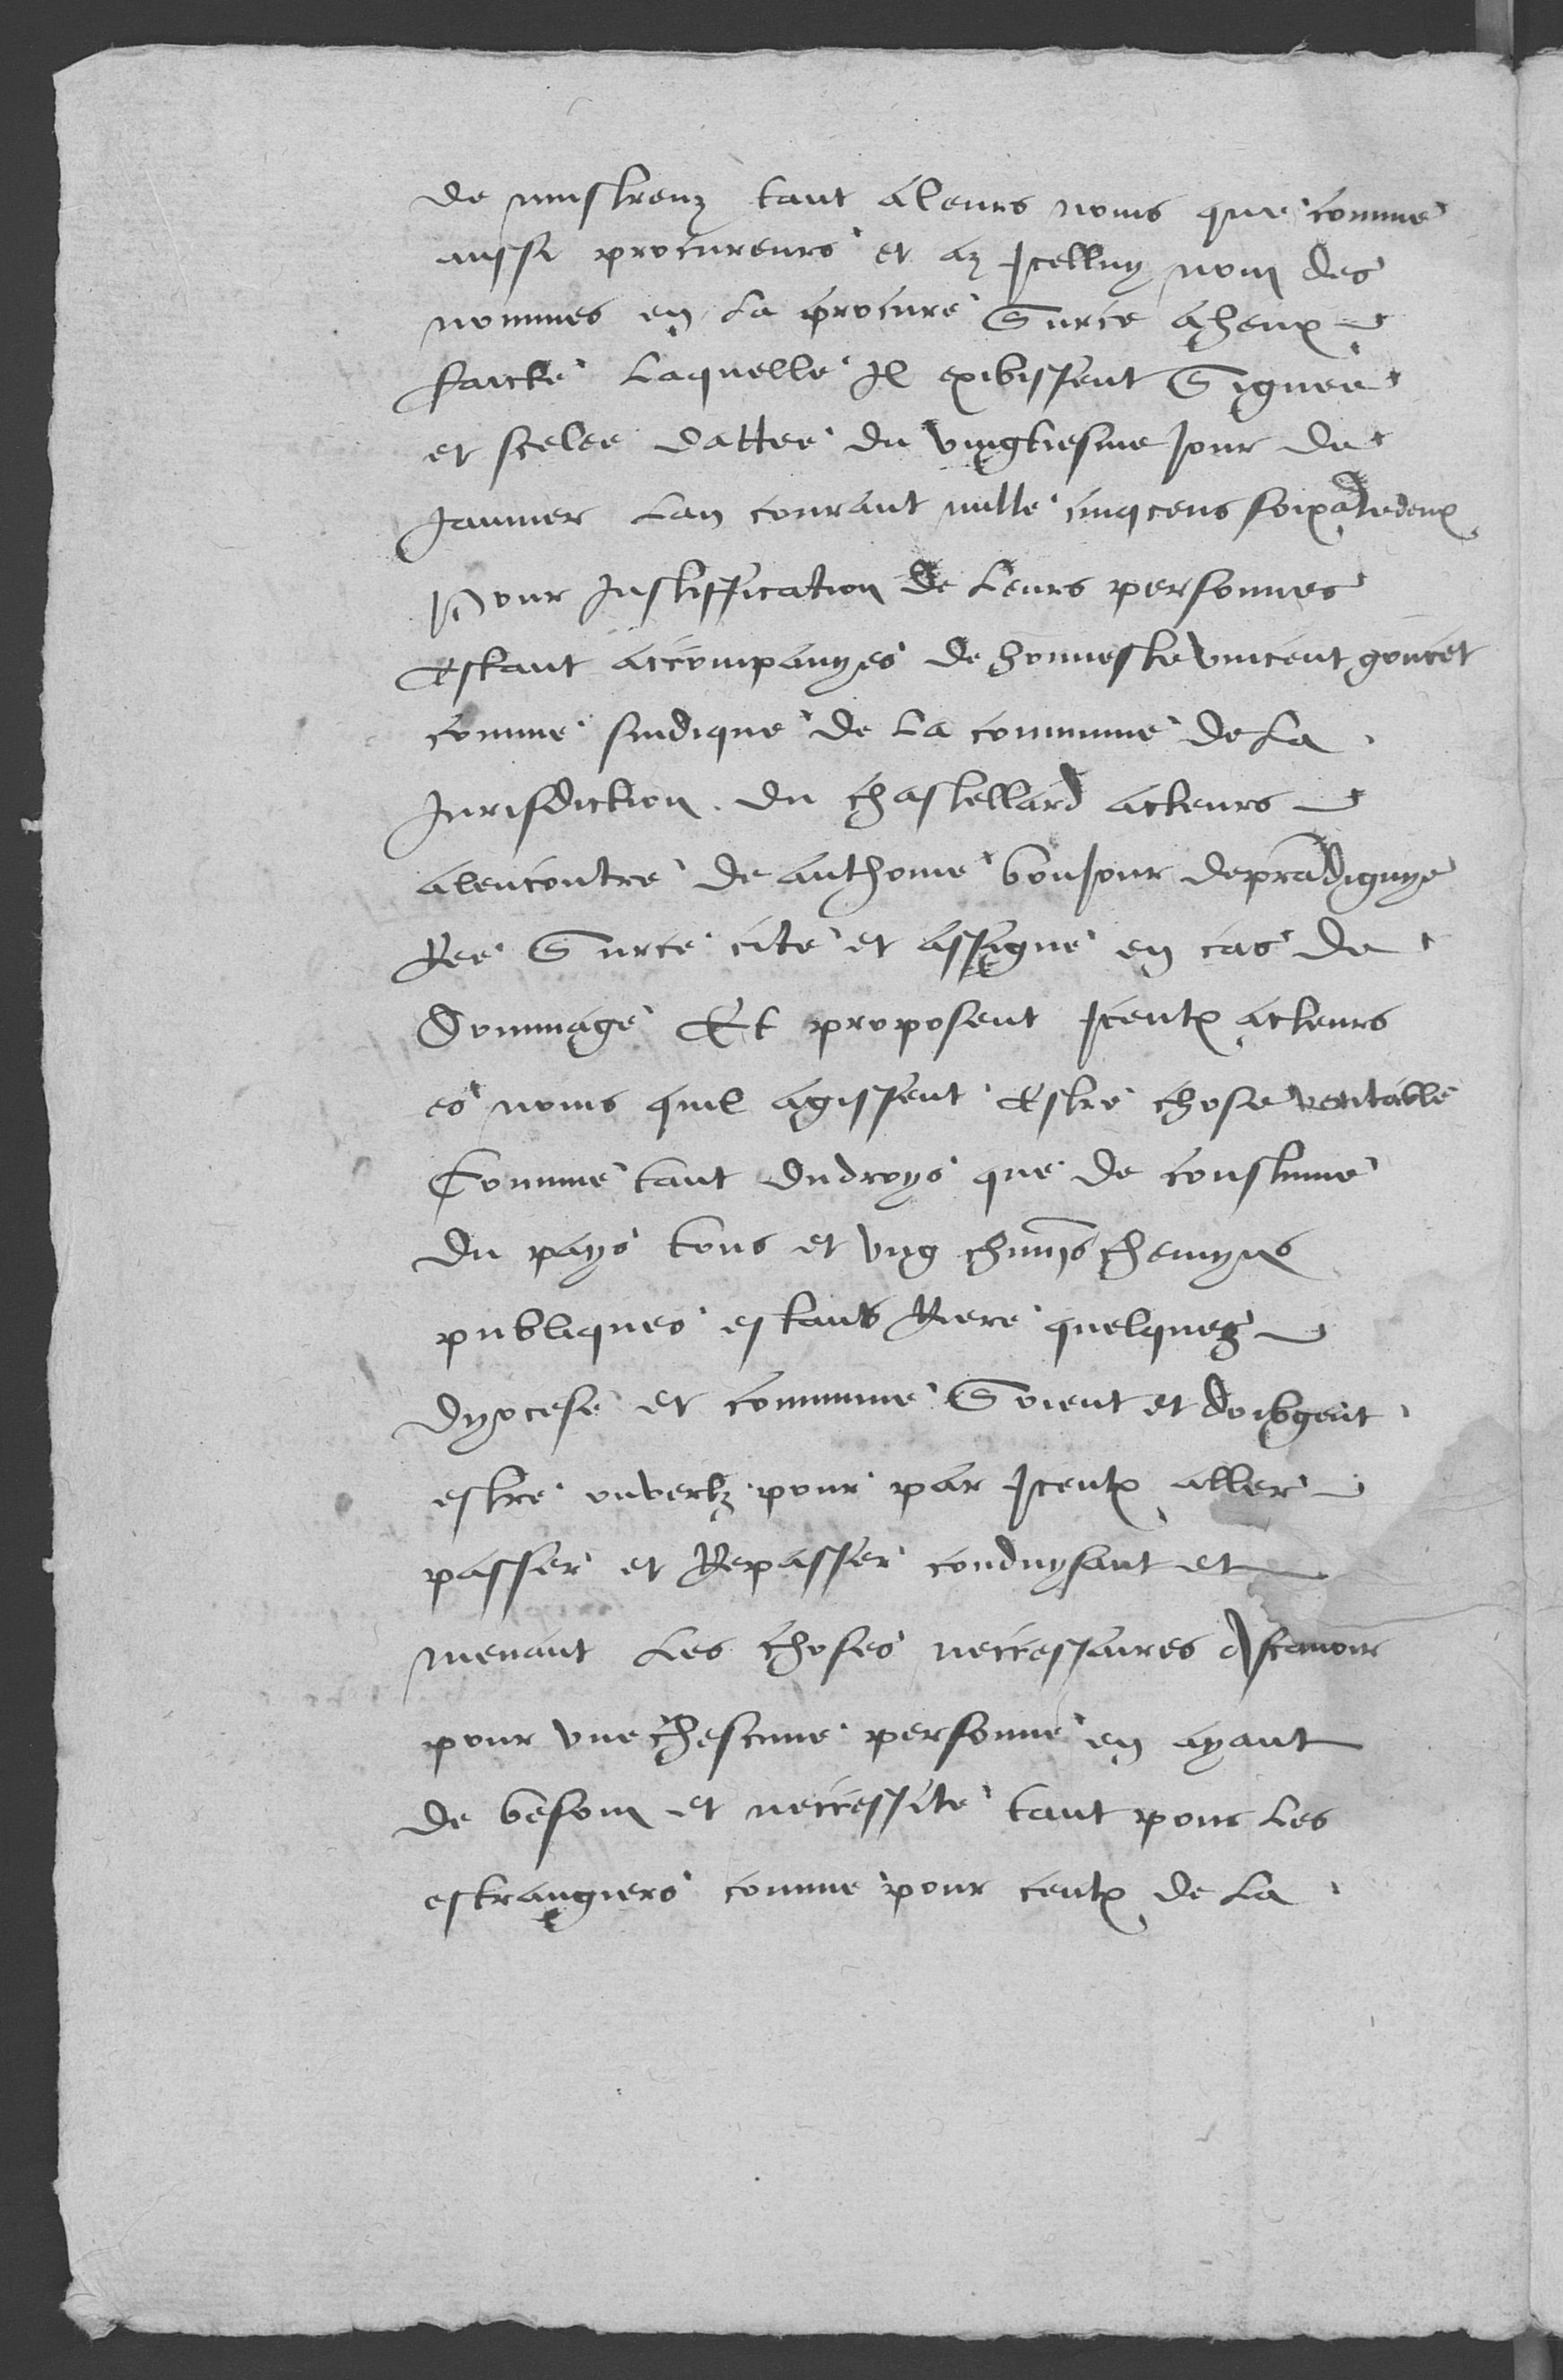 de mustreuz tant a leurs noms que comme
aussi procureurs et az Icelluy nom des
nommes en la procure Surce a heux
faicte Laquelle Il exibissent Signee
et scelee dattee du vingtiesme Jour de
Janvier Lan courant mille cinqcens soixatedeux
Pour Justiffication de Leurs personnes
Estant accompanyes de honneste vincent goncet
comme sindique de La commune de La
Jurisdiction du chastellard acteurs
alencontre de anthoine bonJour de pradiguye
Ree Surce cite et assigne en cas de
Dommage Et proposent Iceulx acteurs
es noms quil agissent Estre chose veritable
Comme tant dudroys que de coustume
du pays tous et ung chuns chemyns
publiques estants Riere quelques
dyocese et commune Soient et doibgent
estre ouvertz pour par Iceulx aller
passer et Repasser conduysant et
menant Les choses neccessaires Ascavoir
pour une chescune personne en ayant
de besoin et neccessite tant pour Les
estrangiers comme pour ceulx de La